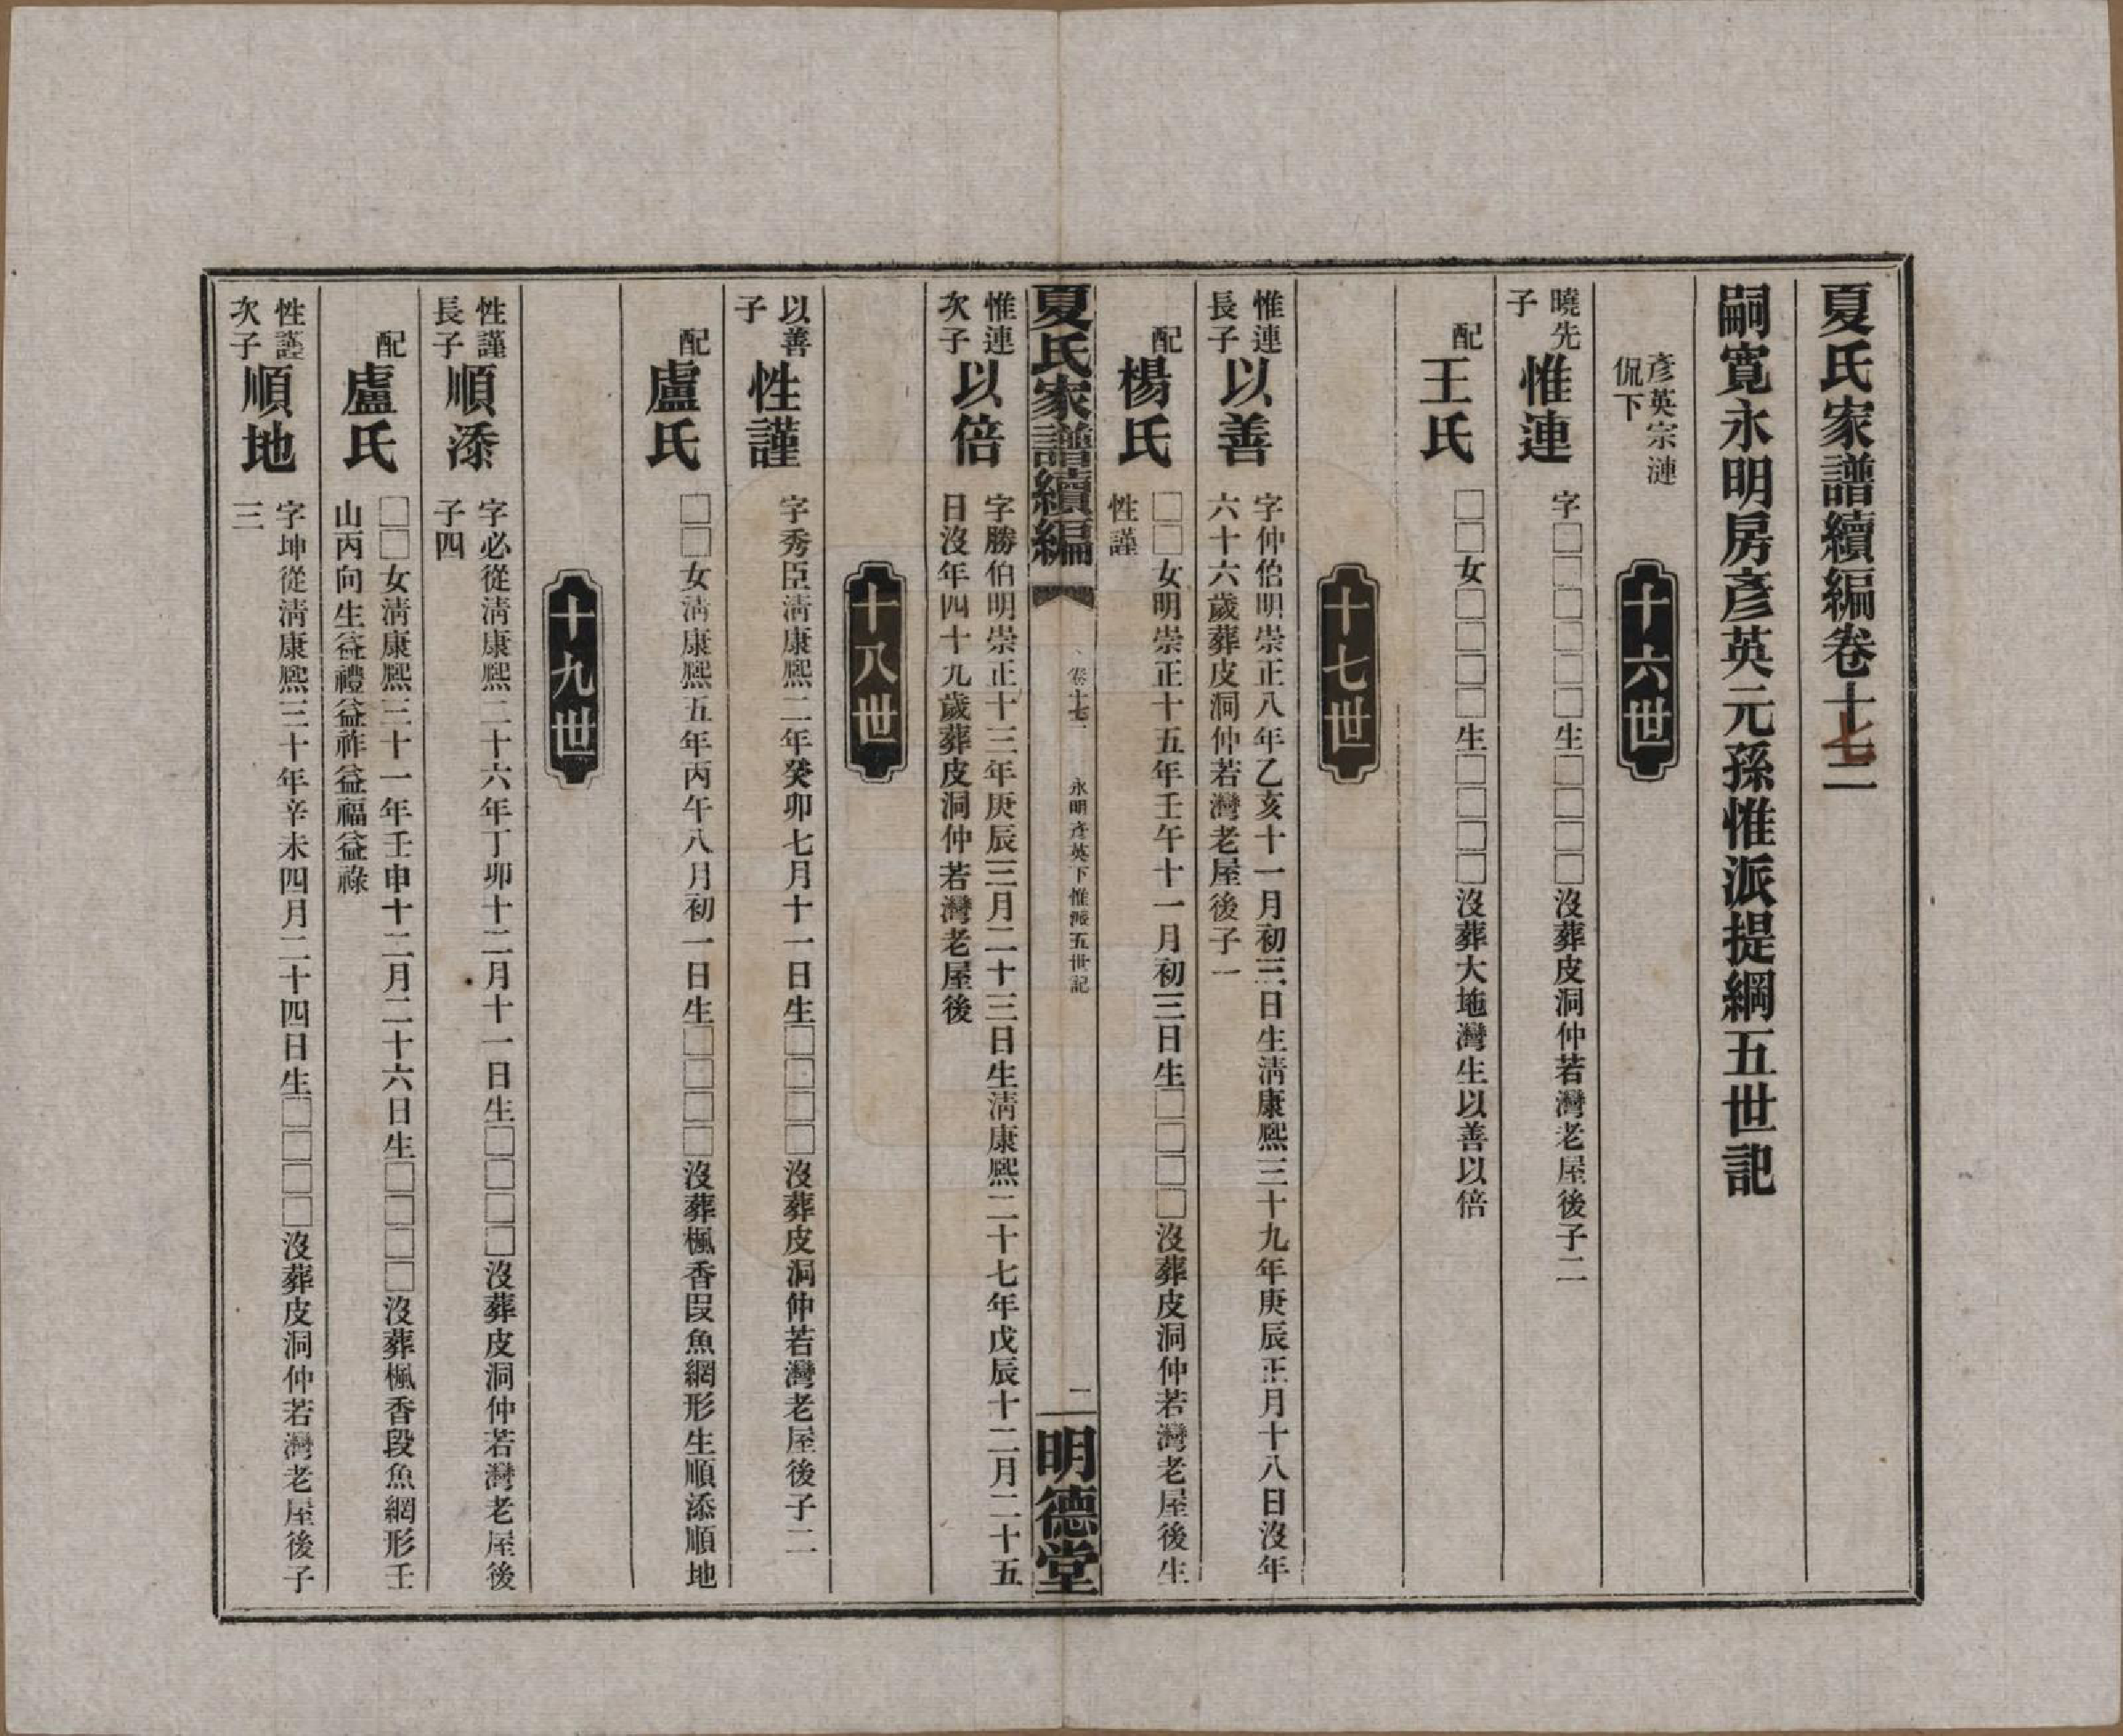 夏氏家譜續編卷十七二
嗣寬永明房彥英元孫惟派提綱五世記
彥英宗漣
侃下
十六世
曉先
子
惟連
字□□□□□生□□□□沒葬皮洞仲若灣老屋後子二
配
王氏
□□女□□□□生□□□□沒葬大地灣生以善以倍
十七世
惟連
長子
以善
字仲伯明崇正八年乙亥十一月初三日生淸康熙三十九年庚辰正月十八日沒年
六十六歲葬皮洞仲若灣老屋後子一
配
楊氏
□□女明崇正十五年壬午十一月初三日生□□□□沒葬皮洞仲若灣老屋後生
性謹
夏氏家譜續編
卷十七二
永明彥英下惟派五世記
二
明德堂
惟連
次子
以倍
字勝伯明崇正十三年庚辰三月二十三日生淸康熙二十七年戊辰十二月二十五
日沒年四十九歲葬皮洞仲若灣老屋後
十八世
以善
子
性謹
字秀臣淸康熙二年癸卯七月十一日生□□□□沒葬皮洞仲若灣老屋後子二
配
盧氏
□□女淸康熙五年丙午八月初一日生□□□□沒葬楓香段魚網形生順添順地
十九世
性謹
長子
順添
字必從淸康熙二十六年丁卯十二月十一日生□□□□沒葬皮洞仲若灣老屋後
子四
配
盧氏
□□女淸康熙三十一年壬申十二月二十六日生□□□□沒葬楓香段魚網形壬
山丙向生益禮益祚益福益祿
性謹
次子
順地
字坤從淸康熙三十年辛未四月二十四日生□□□□沒葬皮洞仲若灣老屋後子
三